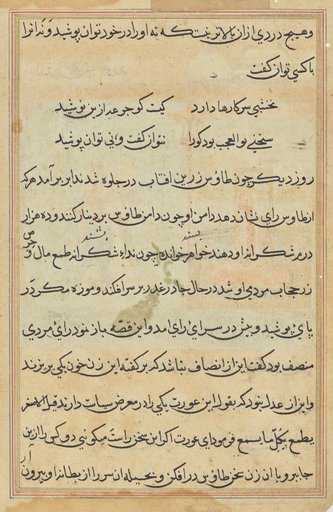 وهیچ دردی از از بالاتر نیست که نه او را در خود توان پوشید و نه از
با کسی توان گفت
نخشبی سرکارها دارد کیست کو جرعه ازین نوشید
سخنی بوالعجب بود کورا نتوان گفت و نی توان پوشید
روز دیگر چون طاوس زرین افتاب در جلوه شد ندا بر برآمد هرکه
از طاوس رای نشان دهد دامن او چون دامن طاوس پر دینار کنند و ده هزار
درم شکرانه او دهند خواهر خوانده چون نداء شکرانه طمع مال و
زر حجاب مردی او شد در حال چادر غدر بر سر افکند و موزه مکر در
پای پوشید و پیش در سرای رای امد و این قصه باز نمود رای مردی
منصف بود گفت این از انصاف نباشد که بر گفته این زن خون یکی بریزند
و این از عدل نبود که بقول این عورت یکی را در معرض سیاست دارند
بکل ما یسمع فرمود ای عورت اگر این سخن راست میکویی دو کس را ازین
جا ببر و با ان زن سخن طاوس در افکن و بحیله از سر را از بطانه او بیرون